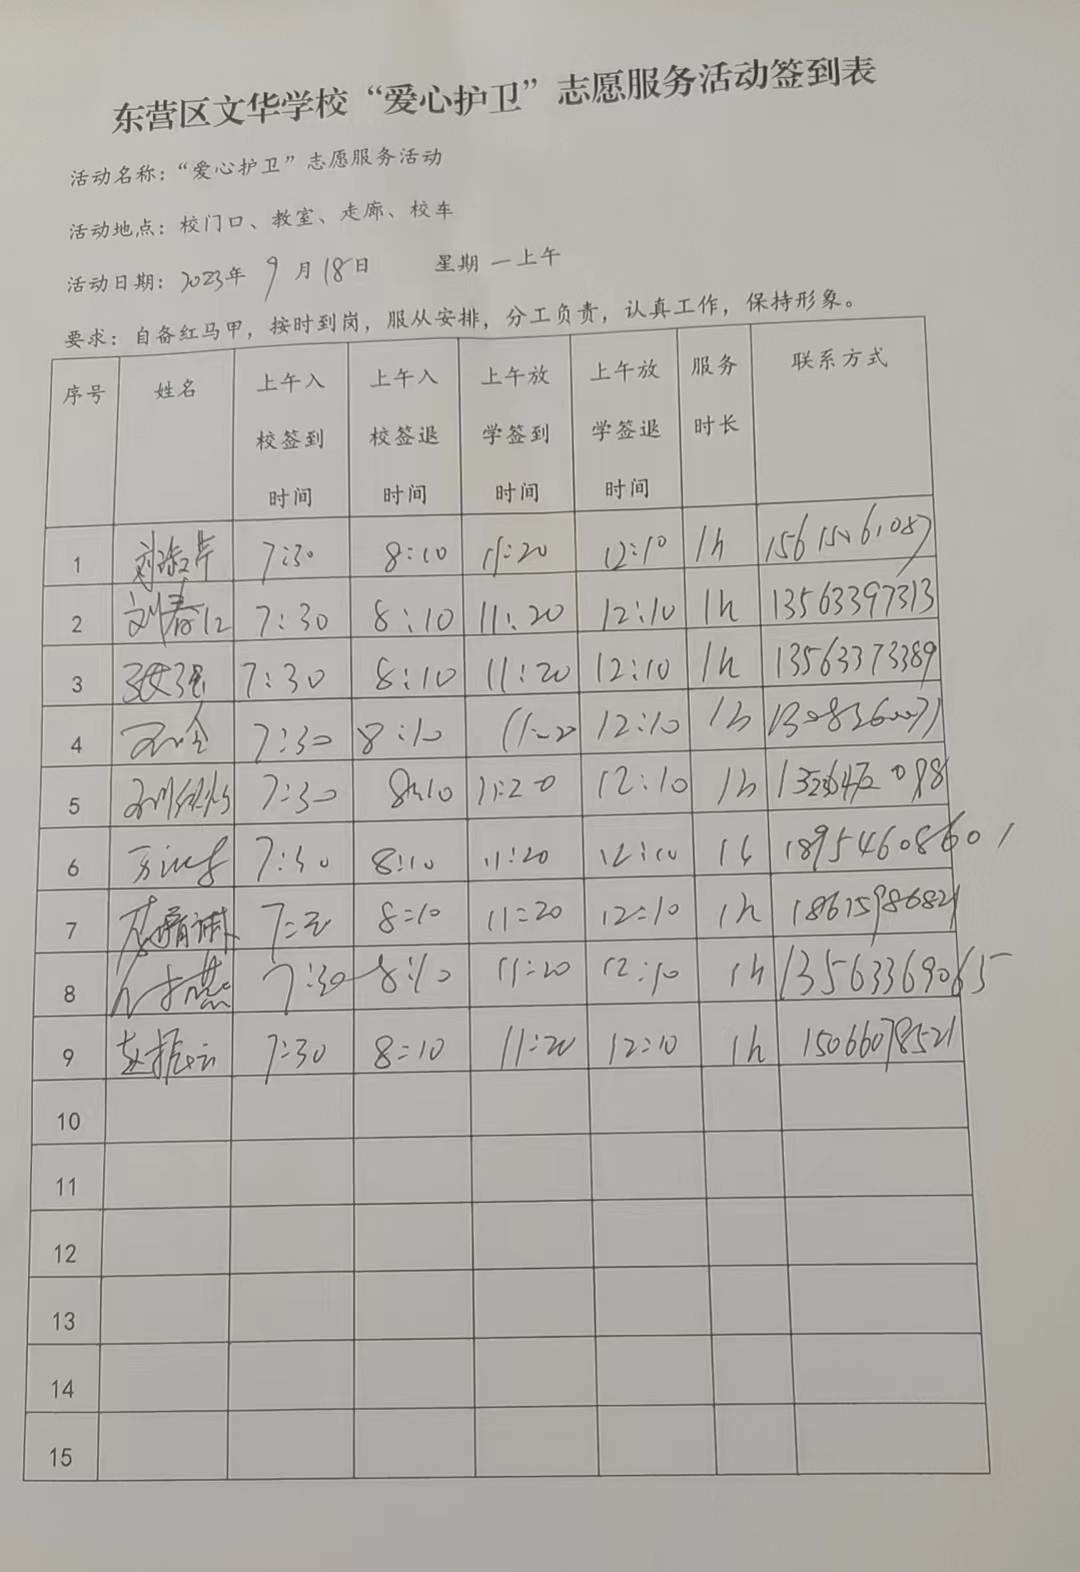 东营区文华学校“爱心护卫”志愿服务活动签到表
活动名称：“爱心护卫”志愿服务活动
活动地点：校门口、教室、走廊、校车
活动日期：2023年 9月18日 星期一上午
要求：自备红马甲，按时到岗，服从安排，分工负责，认真工作，保持形象。
序号 姓名 上午入校签到时间 上午入校签退时间 上午放学签到时间 上午放学签退时间 服务时长 联系方式
1 7:30 8:10 11:20 12:10 1h
2 刘春江 7:30 8:10 11:20 12:10 1h 13563397313
3 7:30 8:10 11:20 12:10 1h 13563373389
4 7:30 8:10 11:20 12:10 1h
5 7:30 8:10 11:20 12:10 1h
6 7:30 8:10 11:20 12:10 1h 18954608601
7 7:30 8:10 11:20 12:10 1h
8 7:30 8:10 11:20 12:10 1h 13563369065
9 赵振云 7:30 8:10 11:20 12:10 1h 15066078521
10
11
12
13
14
15